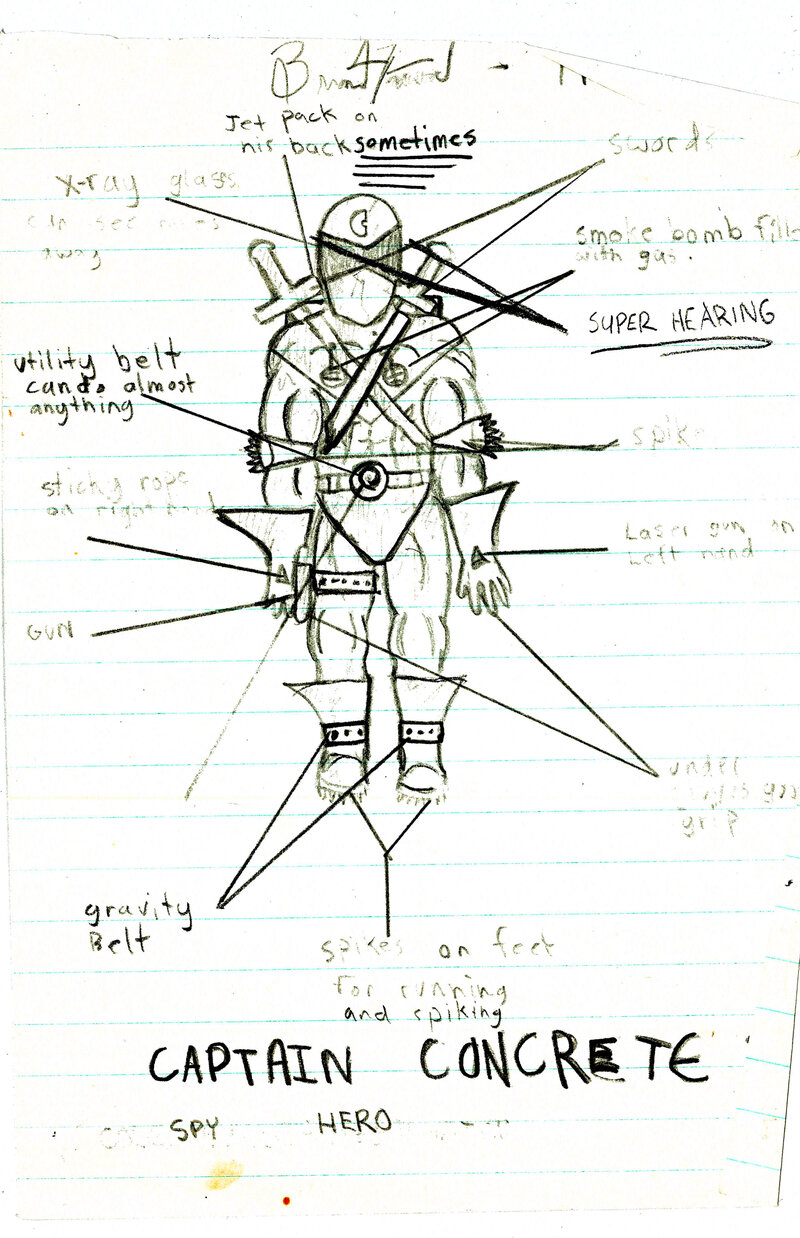 Jet pack on
his back sometimes
swords
x-ray glass
can see miles
away
smoke bomb fill
with gas.
SUPER HEARING
utility belt
can do almost
anything
spike
sticky rope
on right hand
Laser gun on
Left hand
GUN
under
grip
gravity
Belt
spikes on feet
for running
and spiking
CAPTAIN CONCRETE
SPY HERO
C